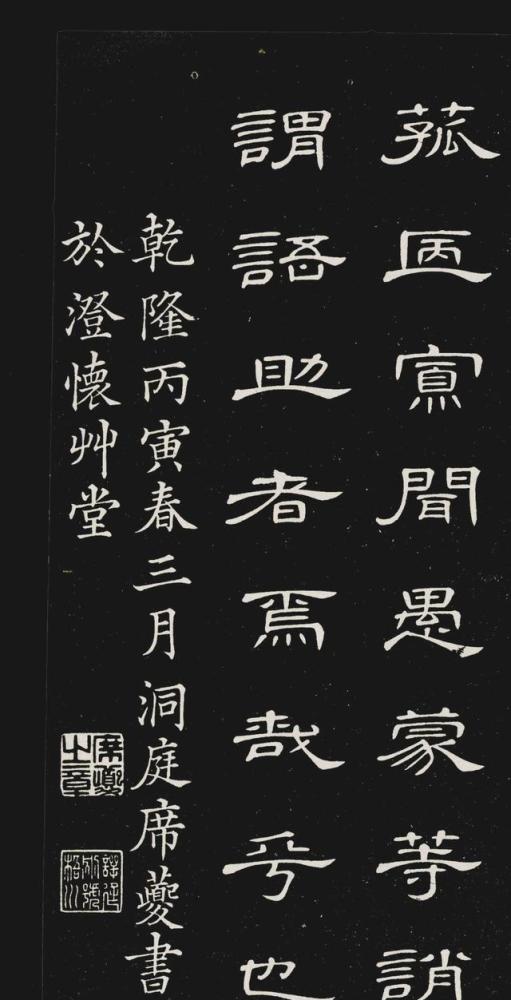 菰㔷寡聞愚蒙等誚
謂語助者焉哉乎也
乾隆丙寅春三月洞庭席蘷書
於澄懷艸堂
席夔之章